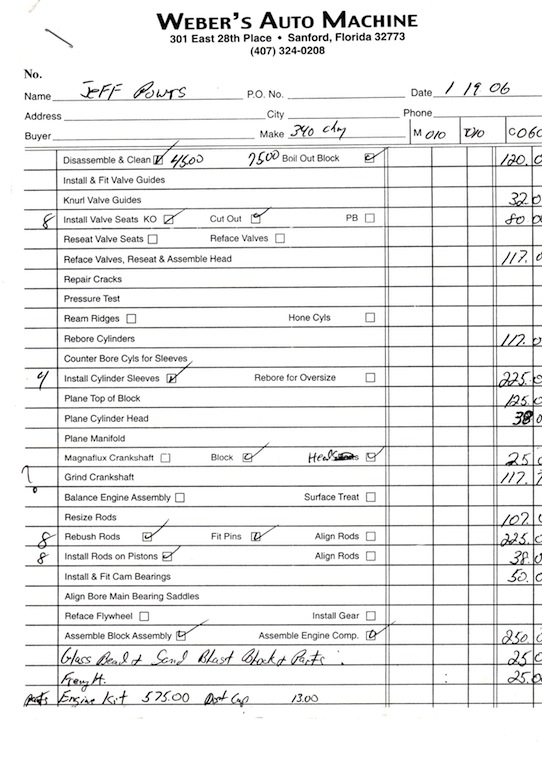 WEBER'S AUTO MACHINE
301 East 28th Place • Sanford, Florida 32773
(407) 324-0208
No.
Name Jeff Powis P.O. No. Date 1 19 06
Address City Phone
Buyer Make 340 Chy M 010 T/10 C 060
Disassemble & Clean 4500 7500 Boil Out Block 120.0
Install & Fit Valve Guides
Knurl Valve Guides 32 0
8 Install Valve Seats KO Cut Out PB 80 0
Reseat Valve Seats Reface Valves
Reface Valves, Reseat & Assemble Head 117.0
Repair Cracks
Pressure Test
Ream Ridges Hone Cyls
Rebore Cylinders 117.0
Counter Bore Cyls for Sleeves
4 Install Cylinder Sleeves Rebore for Oversize 225.0
Plane Top of Block 125.0
Plane Cylinder Head 38 0
Plane Manifold
Magnaflux Crankshaft Block Heads 25 0
Grind Crankshaft 117.
Balance Engine Assembly Surface Treat
Resize Rods 107.0
8 Rebush Rods Fit Pins Align Rods 225.0
8 Install Rods on Pistons Align Rods 38.0
Install & Fit Cam Bearings 50.0
Align Bore Main Bearing Saddles
Reface Flywheel Install Gear
Assemble Block Assembly Assemble Engine Comp. 250.0
Glass Bead & Sand Blast Block & Parts 25 0
25.0
Parts Engine Kit 575.00 Cap 13.00